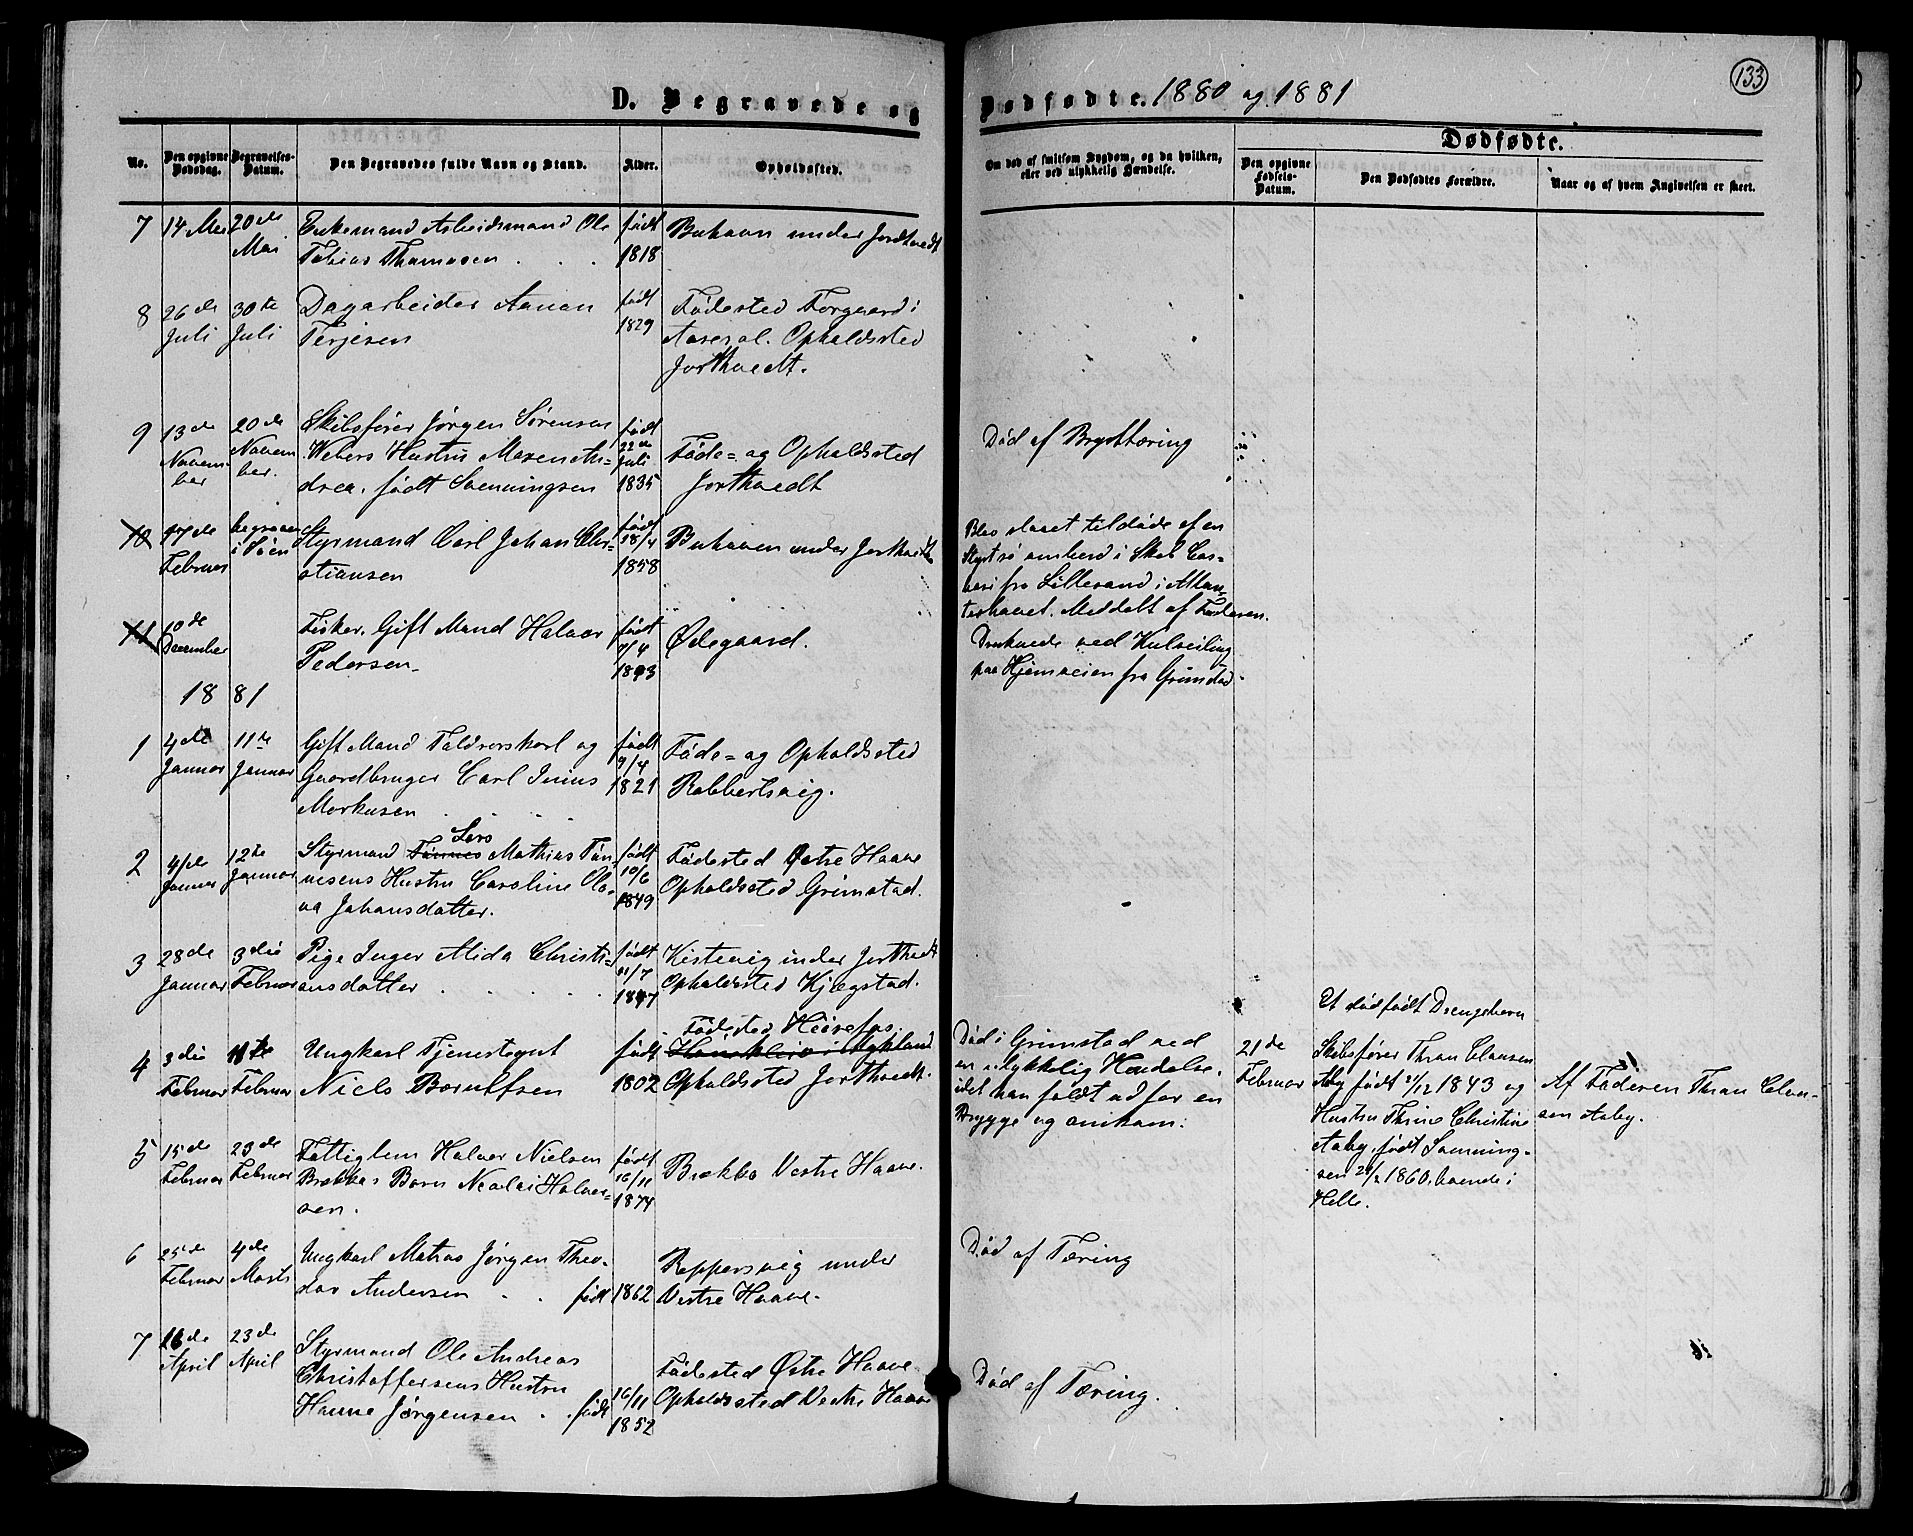 133
D. Begravede og Dødfødte. 1880 og 1881
Dødfødte.
No.
Den opgivne Dødsdag.
Begravelses-Datum.
Den Begravedes fulde Navn og Stand.
Alder.
Opholdssted.
Om død af smitsom Sygdom, og da hvilken,
eller ved ulykkelig Hændelse.
Den opgivne Fødsels-Datum.
Den Dødfødtes Forældre.
Naar og af hvem Angivelsen er skeet.
7
14 Mai
20de
Mai
Enkemand Arbeidsmand Ole
Tobias Thomasen
født
1818
Buhavn under Jortvedt
8
26de
Juli
30te
Juli
Dagarbeider Aanon
Terjesen
født
1829
Fødested Torgaard i
Aaseral. Opholdssted
Jorthvedt.
9
13de
Novem-
ber
20de
Novem
ber.
Skibsfører Jørgen Sörensen
Webers Hustru Maren An-
drea, født Svenningsen
født
22de
Juli
1835
Føde- og Opholdssted
Jorthvedt
Død af Brysttæring
10
17de
Februar
begraven
i Søen
Styrmand Carl Johan Chri-
stiansen
født
18/4
1858
Buhaven under Jorthvedt
Blev slaaet tildøde af en
Styrtsø ombord i Skib Cas-
hari fra Lillesand i Atlan-
terhavet. Meddelt af Faderen.
11
10de
December
Fisker, Gift Mand Halvor
Pedersen
født
9/4
1843
Ødegaard.
Druknede ved Kulseiling
paa Hjemveien fra Grimstad.
1881
1
4de
Januar
11te
Januar
Gift Mand Toldroerskarl og
Gaardbruger Carl Junius
Markusen
født
9/4
1821
Føde- og Opholdssted
Robbertsvig.
2
4de
Januar
12te
Januar
Lars
Styrmand Tønnes Mathias Tøn-
nesens Hustru Caroline Ole-
va Johansdatter.
født
10/6
1849
Fødested Østre Haave
Opholdssted Grimstad.
3
28de
Januar
3die
Februar
Pige Inger Alida Christi-
ansdatter
født
11/7
1847
Kistevig under Jorthvedt
Opholdssted Kjægstad.
4
3die
Februar
11te
Februar
Ungkarl Tjenestegut
Niels Borulfsen
født
1802
Fødested Heirefos
i Mykland
Opholdssted Jorthvedt.
Død i Grimstad ved
en ulykkelig Hændelse,
idet han faldt ud for en
Brygge og omkom.
21de
Februar
Et dødfødt Drengebarn
Skibsfører Thran Clausen
Aaby født 21/12 1843 og
Hustru Thrine Christine
Aaby, født Sønning-
sen 29/2 1860, boende i
Helle.
Af Faderen Thran Clau-
sen Aaby.
5
15de
Februar
23de
Februar
Fattiglem Halvor Nielsen
Brækkas Barn Nicolai Halvor-
sen.
født
16/11
1874
Brækka Vestre Haave.
6
25de
Februar
4de
Marts
Ungkarl Matros Jørgen Theo-
dor Andersen . . født
1862
Reppersvig under
Vestre Haave.
Død af Tæring
7
16de
April
23de
April
Styrmand Ole Andreas
Christoffersens Hustru
Hanne Jørgensen . . født
16/11
1852
Fødested Østre Haave
Opholdssted Vestre Haave
Død af Tæring.